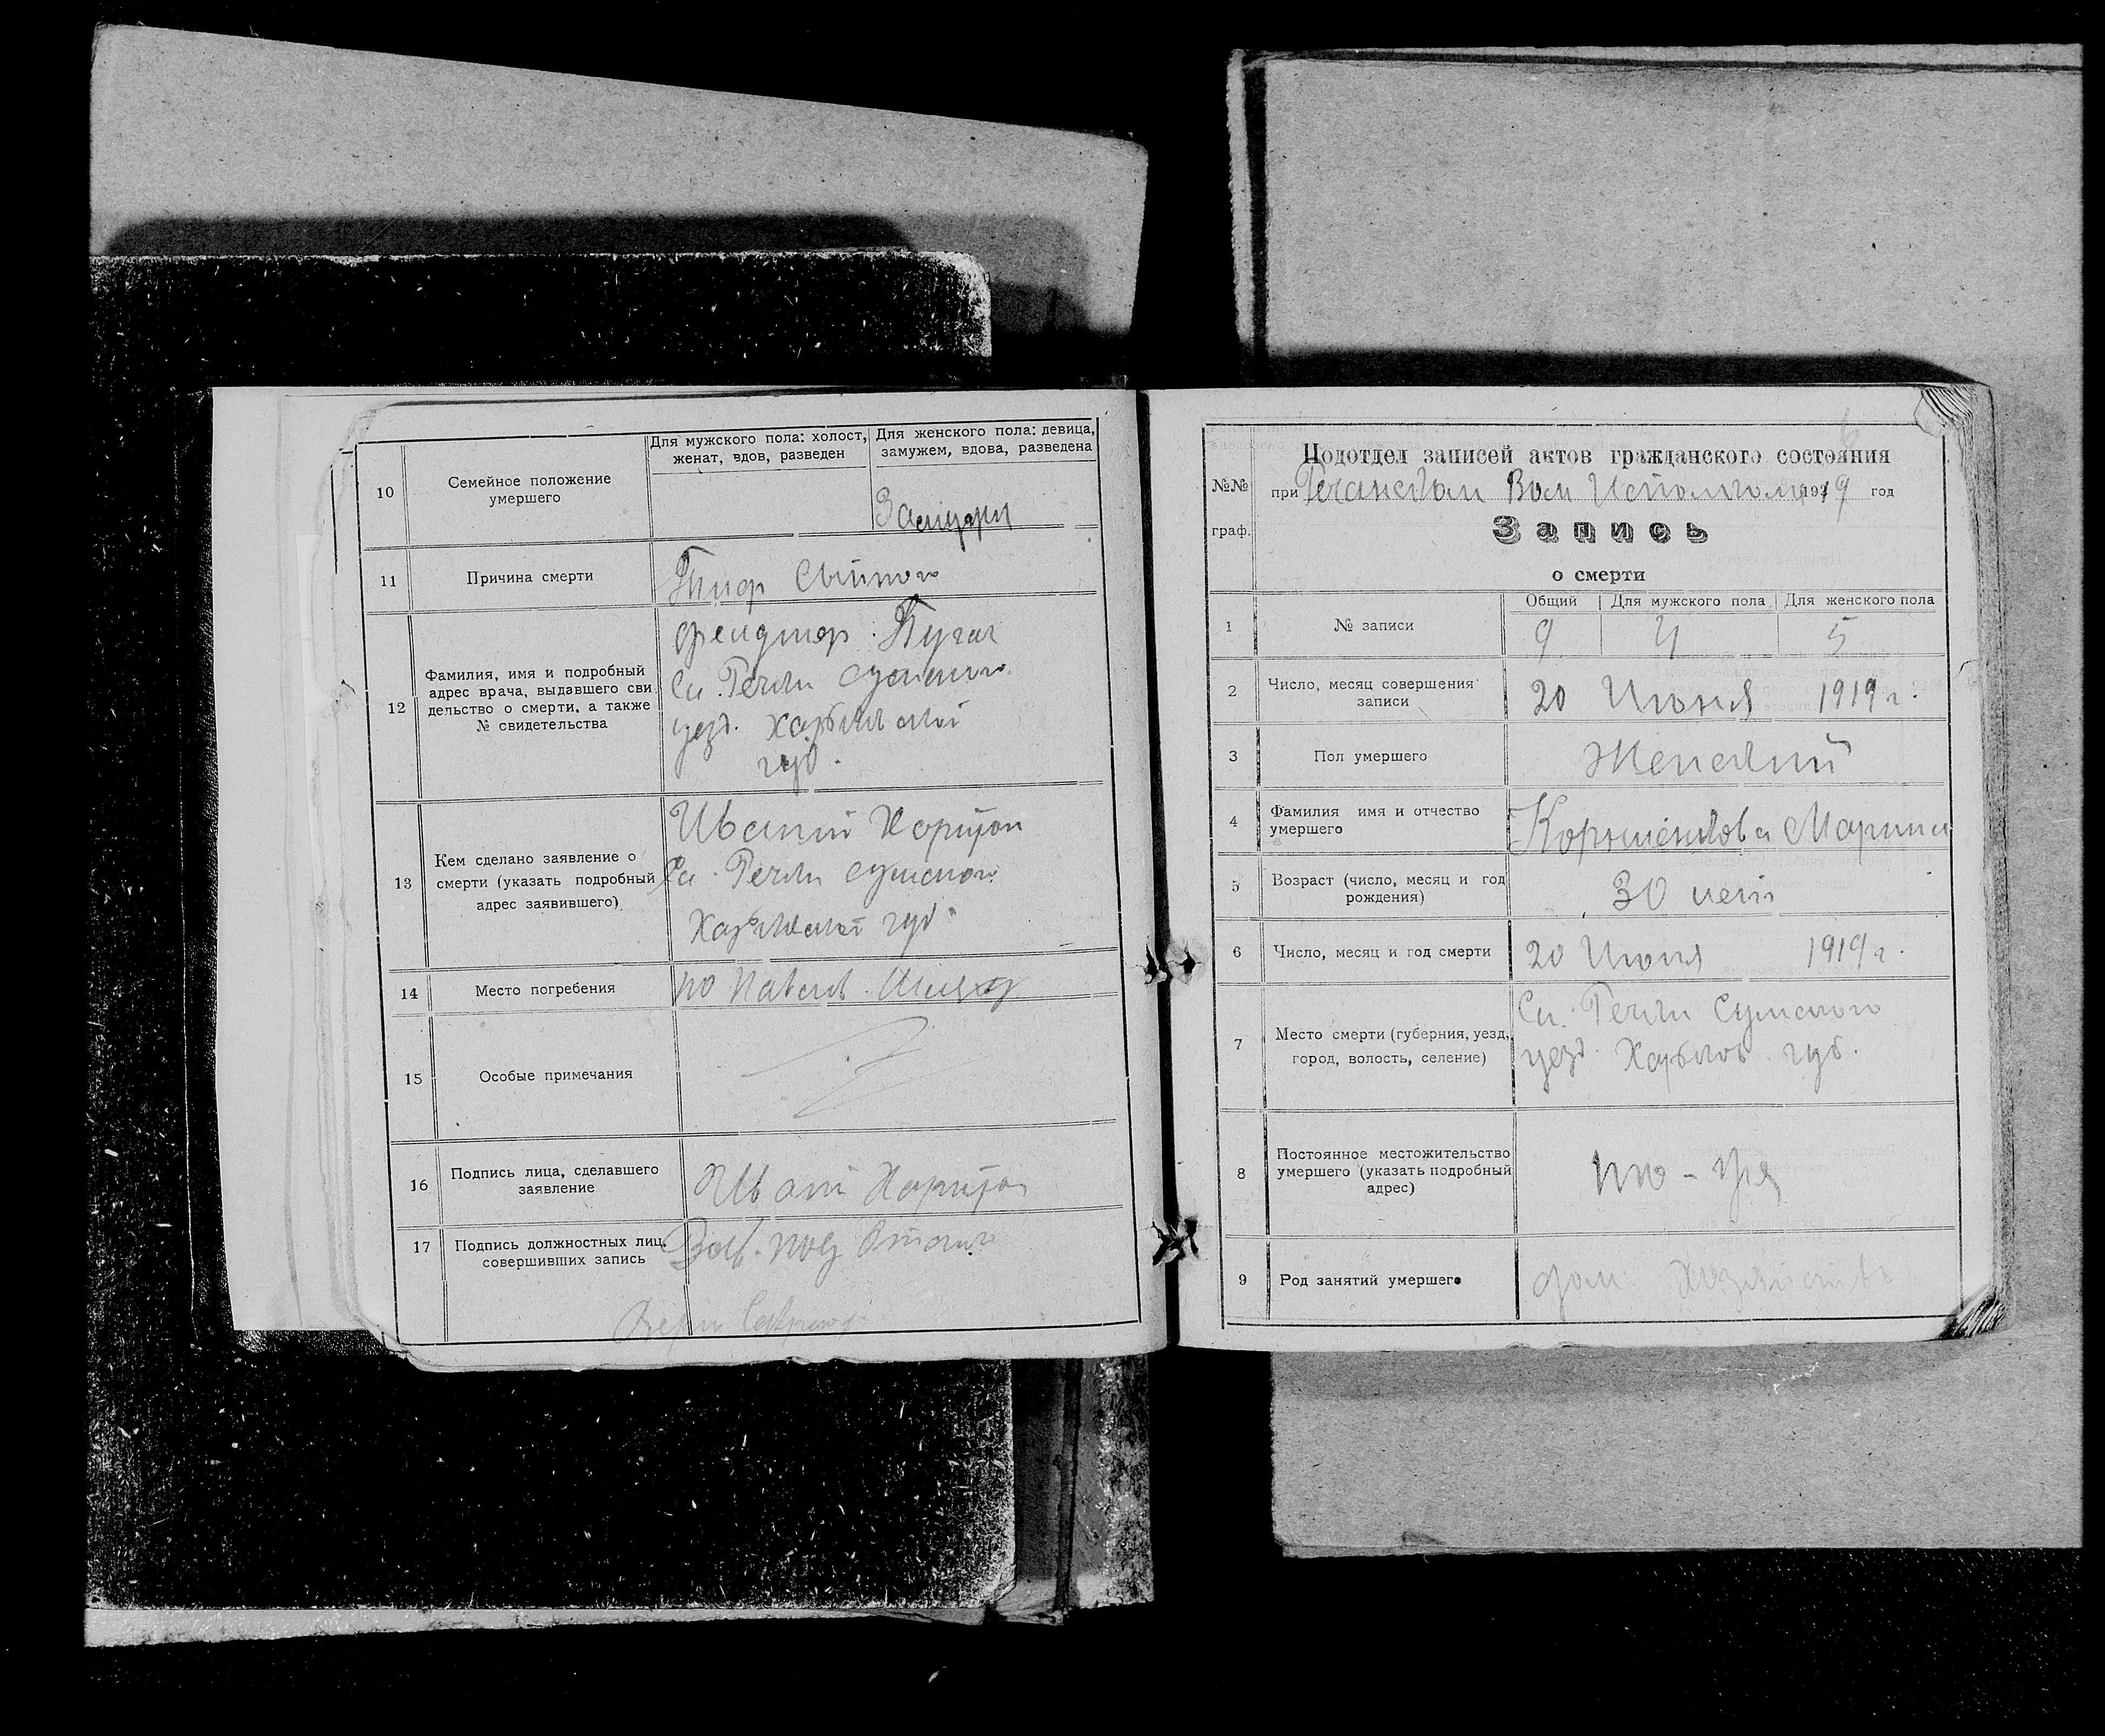 10
Семейное положение
умершего
Для мужского пола: холост,
женат, вдов, разведен
Для женского пола: девица,
замужем, вдова, разведена
Замужем
11
Причина смерти
Тиф Сыпной
12
Фамилия, имя и подробный
адрес врача, выдавшего сви
дельство о смерти, а также
№ свидетельства
Фельдшер Пугач
Сл. Речки Сумского
уезд. Харьковской
губ.
13
Кем сделано заявление о
смерти (указать подробный
адрес заявившего)
Сл. Речки Сумского
Харьковской губ.
14
Место погребения
15
Особые примечания
16
Подпись лица, сделавшего
заявление
17
Подпись должностных лиц,
совершивших запись
№№
граф.
Подотдел записей актов гражданского состояния
при Речанском Вол Исполкоме 1919 год
Запись
о смерти
Общий
Для мужского пола
Для женского пола
1
№ записи
9
4
5
2
Число, месяц совершения
записи
20 Июня 1919 г.
3
Пол умершего
Женский
4
Фамилия имя и отчество
умершего
Марина
5
Возраст (число, месяц и год
рождения)
30 лет
6
Число, месяц и год смерти
20 Июня 1919 г.
7
Место смерти (губерния, уезд,
город, волость, селение)
Сл. Речки Сумского
уезд. Харьков. губ.
8
Постоянное местожительство
умершего (указать подробный
адрес)
9
Род занятий умершего
дом. хозяйство